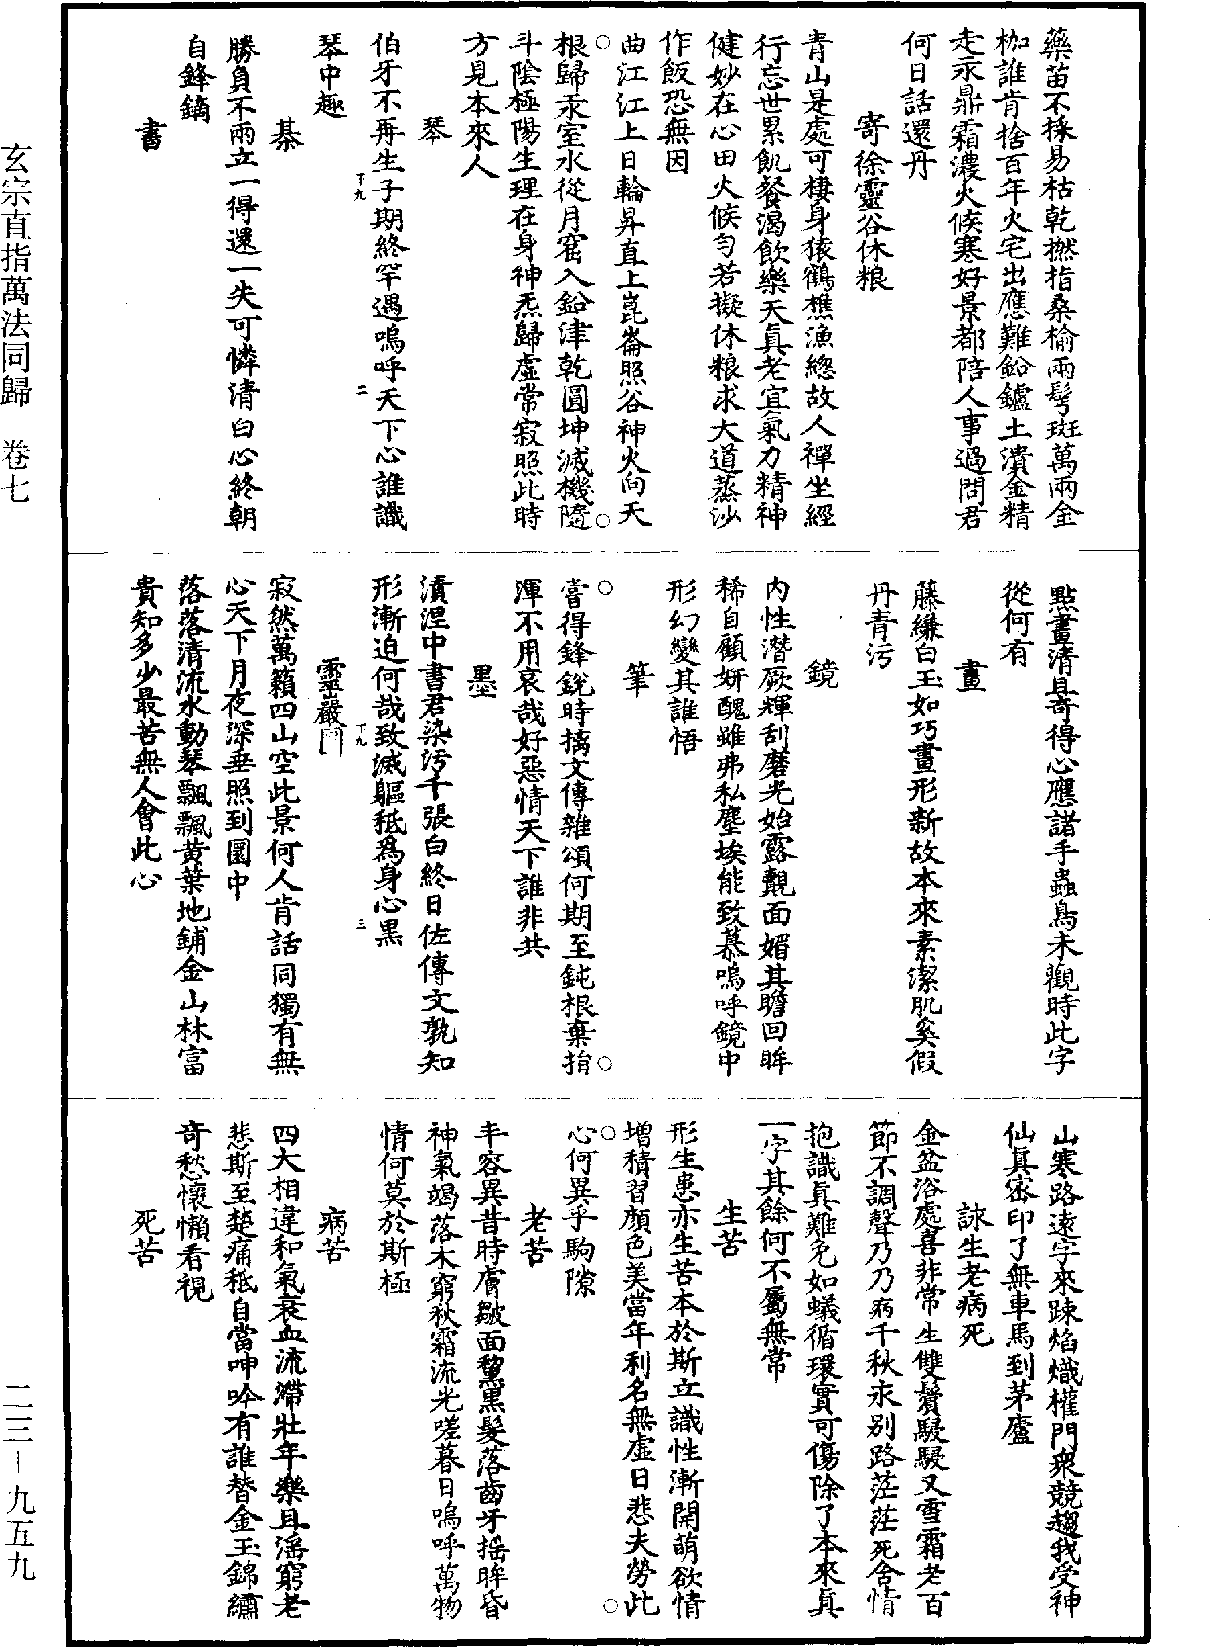 藥苗不採易枯乾撚指桑榆兩髩斑萬兩金
枷誰肯捨百年火宅出應難鉛鑪土潰金精
走汞鼎霜濃火候寒好景都陪人事過問君
何日話還丹
寄徐靈谷休粮
青山是處可棲身猿鶴樵漁總故人禪坐經
行忘世累飢餐渴飲樂天真老宜氣力精神
健妙在心田火候勻若擬休粮求大道蒸沙
作飯恐無因
曲江江上日輪昇直上崑崙照谷神火向天
根歸汞室水從月窟入鉛津乾圓坤減機隨
斗陰極陽生理在身神炁歸虛常寂照此時
方見本來人
琴
伯牙不再生子期終罕遇嗚呼天下心誰識
琴中趣
棊
勝負不兩立一得還一失可憐清白心終朝
自鋒鏑
書
點畫清且奇得心應諸手蟲鳥未觀時此字
從何有
畫
藤縑白玉如巧畫形新故本來素潔肌奚假
丹青污
鏡
內性潛厥輝刮磨光始露覿面媚其瞻回眸
稀自顧妍醜雖弗私塵埃能致慕嗚呼鏡中
形幻變其誰悟
筆
嘗得鋒銳時摛文傳雜頌何期至鈍根棄指
渾不用哀哉好惡情天下誰非共
墨
漬涅中書君染污千張白終日佐傳文孰知
形漸迫何哉致滅軀秪為身心黑
靈巖同
寂然萬籟四山空此景何人肯話同獨有無
心天下月夜深垂照到園中
落落清流水動琴飄飄黃葉地鋪金山林富
貴知多少最苦無人會此心
山寒路遠字來踈焰熾權門衆競趨我受神
仙真密印了無車馬到茅廬
詠生老病死
金盆浴處喜非常生雙鬢駸駸又雪霜老百
節不調聲乃乃病千秋永別路茫茫死含情
抱識真難免如蟻循環實可傷除了本來真
一字其餘何不屬無常
生苦
形生患亦生苦本於斯立識性漸開萌欲情
增積習顏色美當年利名無虛日悲夫勞此
心何異乎駒隙
老苦
丰容異昔時膚皺面黧黑髮落齒牙搖眸昏
神氣竭落木窮秋霜流光嗟暮日嗚呼萬物
情何莫於斯極
病苦
四大相違和氣衰血流滯壯年樂且滛窮老
悲斯至楚痛秪自當呻吟有誰替金玉錦繡
奇愁懷懶看視
死苦
玄宗直指萬法同歸　卷七
二三－九五九